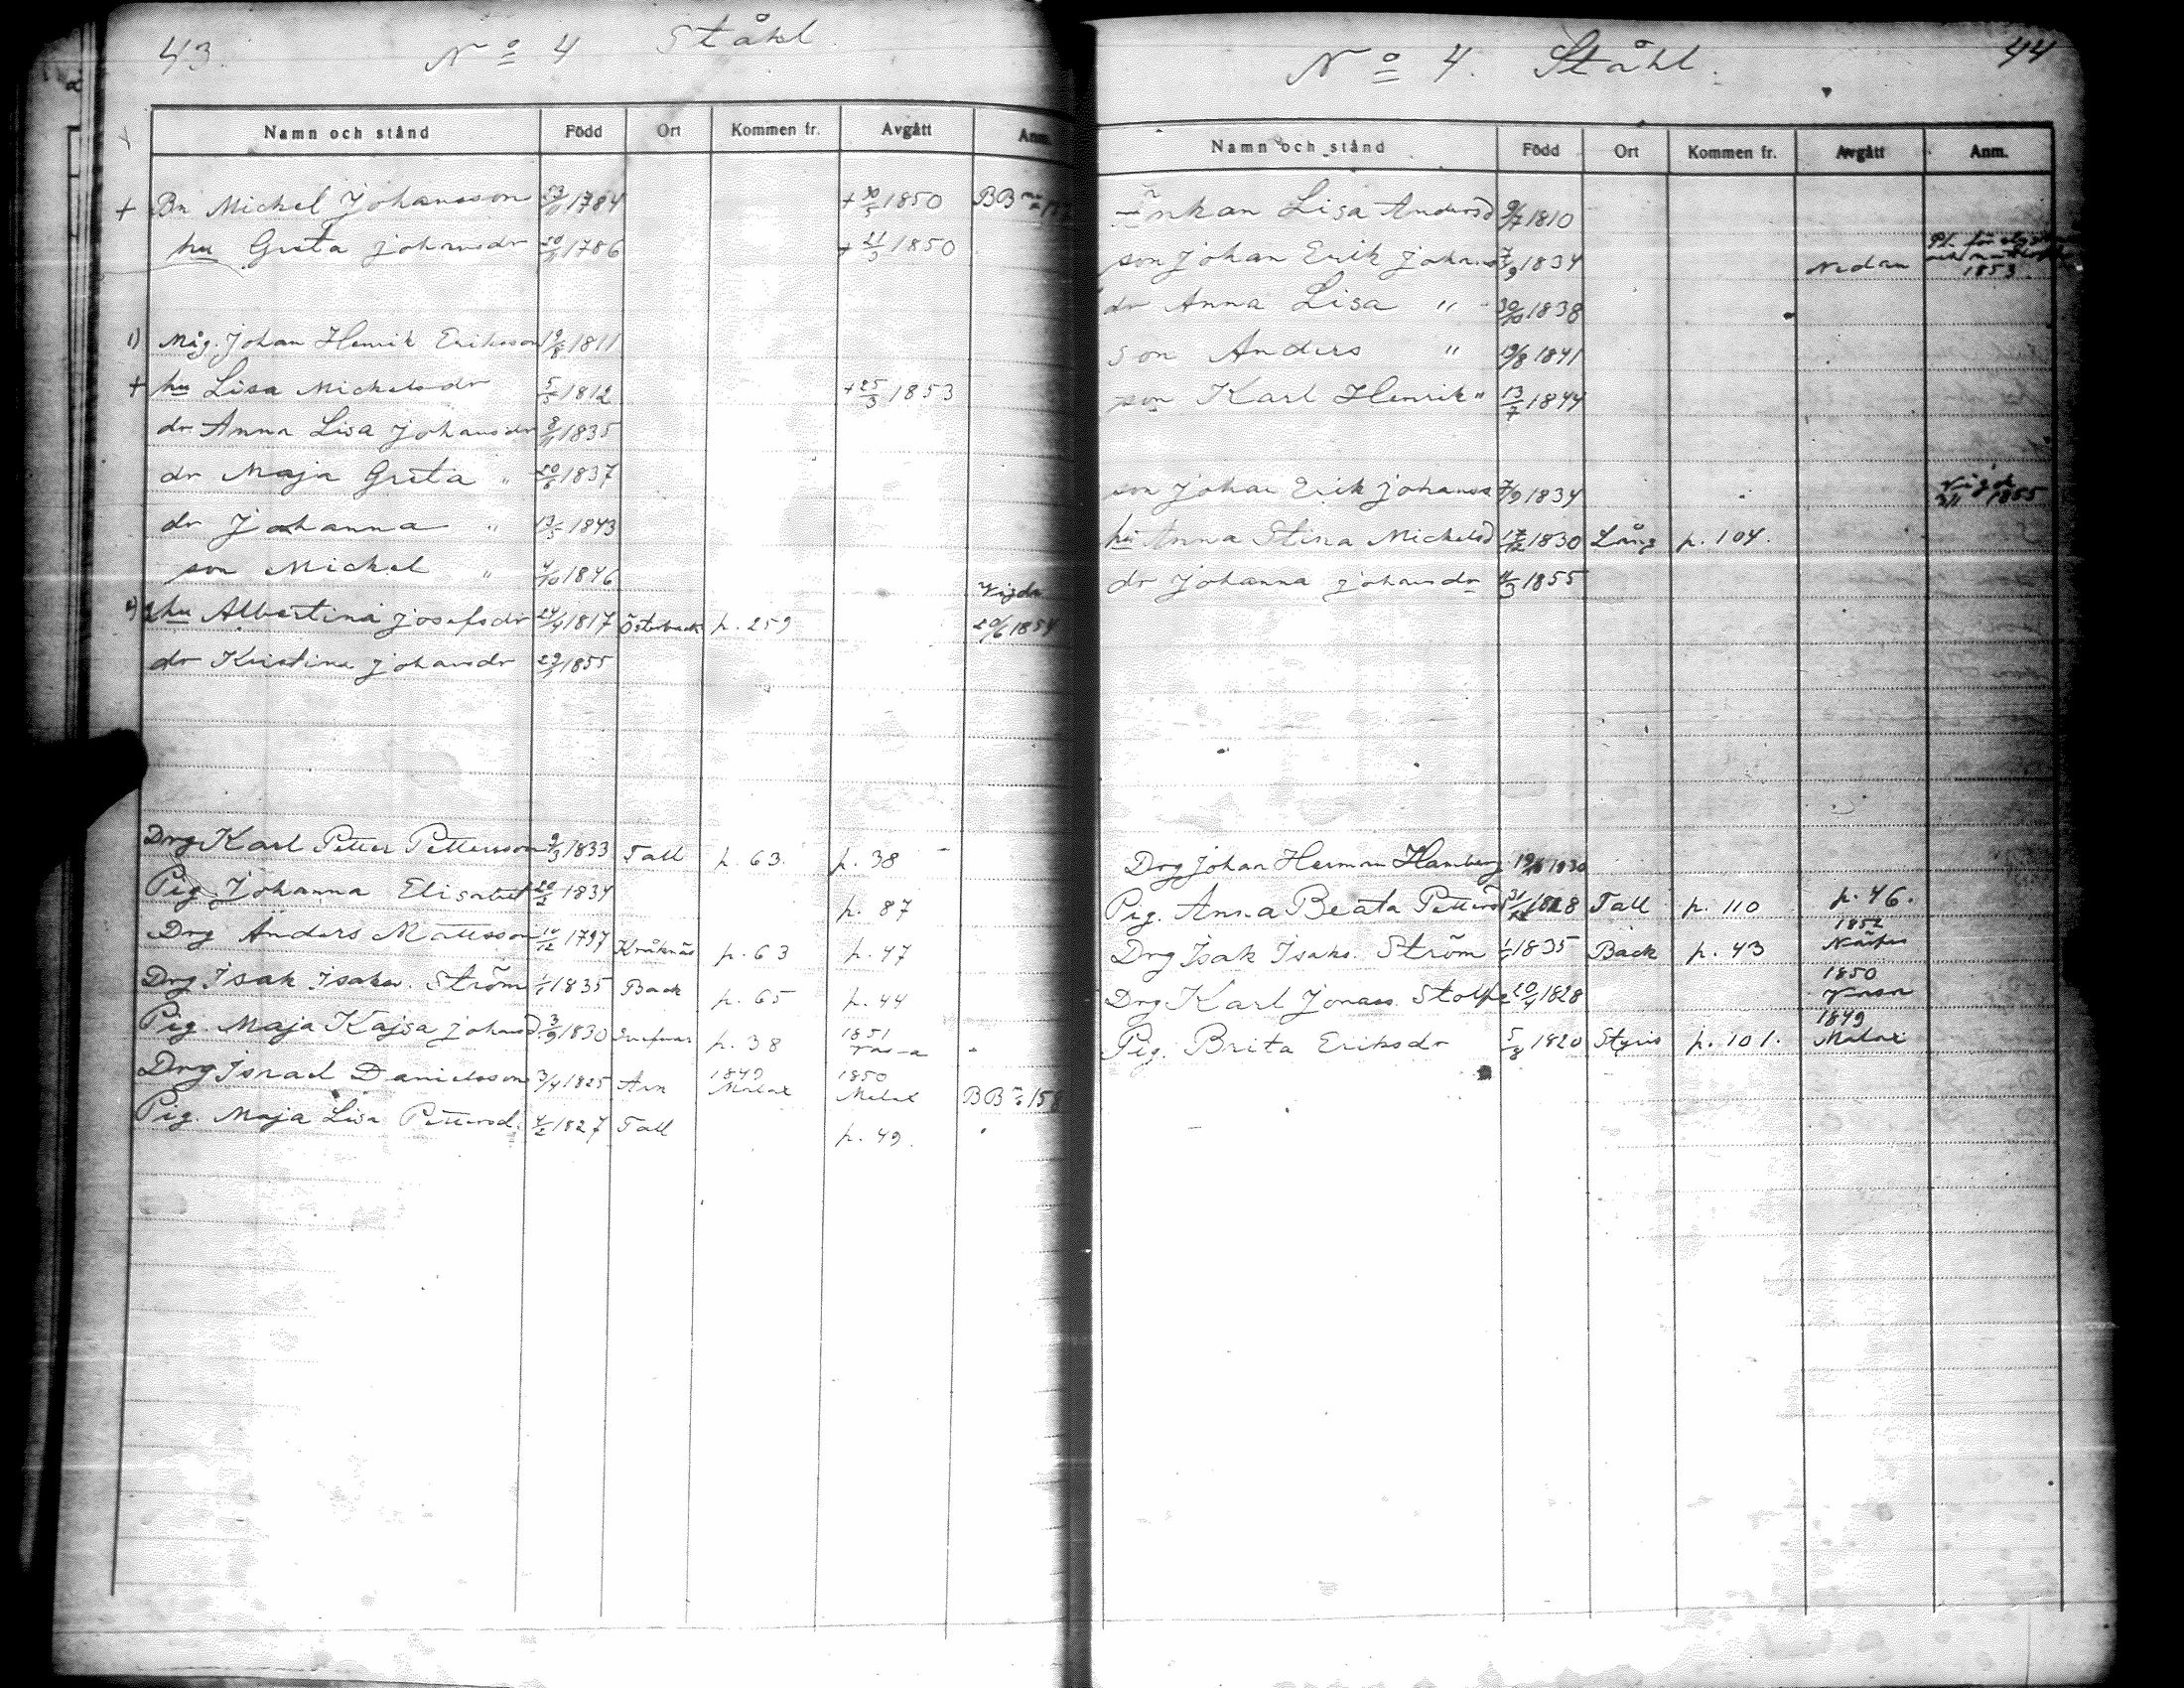 43. No 4 Ståhl.
Namn och stånd Född Ort Kommen fr. Avgått Anm.
+ Bn Michel Johansson 1784 + 30/5 1850 BB
hu Greta Johansdr 1786 + 21/3 1850
1) Måg. Johan Henrik Eriksson 1811
+ hu Lisa Mickelsdr 1812 + 25/3 1853
dr Anna Lisa Johansdr 1835
dr Maja Greta " 1837
dr Johanna " 1843
son Mickel " 1846
Vigda
2 hu Albertina Josefsdr 24/4 1817 Österback p. 259 20/6 1854
dr Kristina Johansdr 1855
Drg Karl Petter Pettersson 9/3 1833 Tall p. 63. p. 38
Pig. Johanna Elisabet 1834 p. 87
Drg Anders Mattsson 1797 Kråknäs p. 63 p. 47
Drg Isak Isakss. Ström 1/1 1835 Back p. 65 p. 44
Pig. Maja Kajsa Johansd. 3/9 1830 p. 38 1851
Drg Israel Danielsson 3/4 1825 1849 Malax 1850 Malax BB 158
Pig. Maja Lisa Pettersd. 1827 Tall p. 49.
No 4. Ståhl. 44
Namn och stånd Född Ort Kommen fr. Avgått Anm.
Änkan Lisa Andersd 9/7 1810
son Johan Erik Johanss 7/9 1834 Nedan 1853
dr Anna Lisa " 30/10 1838
son Anders " 19/8 1841
son Karl Henrik " 13/7 1844
son Johan Erik Johanss 7/9 1834 Vigd 1855
hu Anna Stina Mickelsd 17/12 1830 Lång p. 104.
dr Johanna Johansdr 1855
Drg Johan Herman Hamberg 1830
Pig. Anna Beata Pettersd 1828 Tall p. 110 p. 46.
Drg Isak Isaks. Ström 1/1 1835 Back p. 43 1852 Närpes
Drg Karl Jonass. Stolpe 20/4 1828 1850 Vasa
Pig. Brita Eriksdr 5/8 1820 Styris p. 101. 1849 Malax